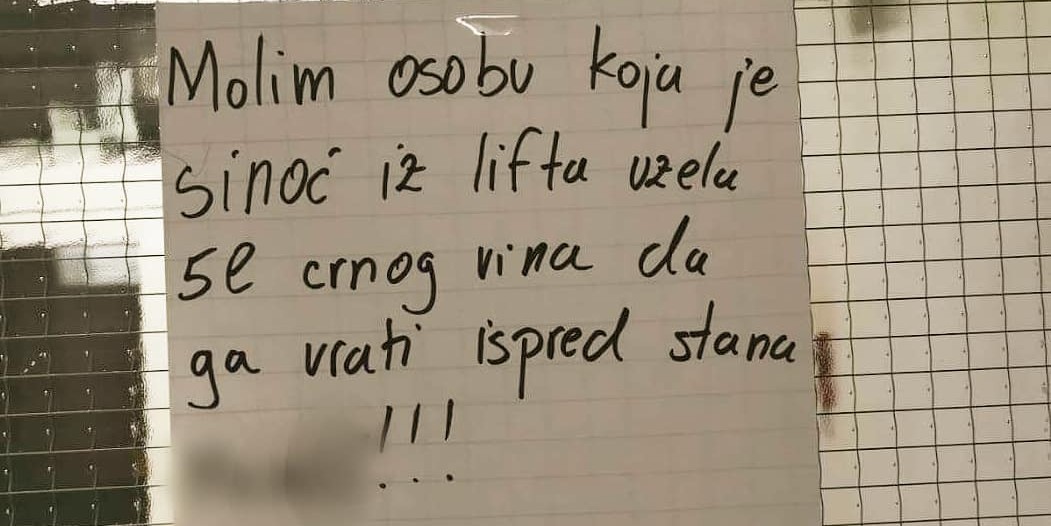 Molim osobu koja je
sinoć iz lifta uzela
5l crnog vina da
ga vrati ispred stana
!!!